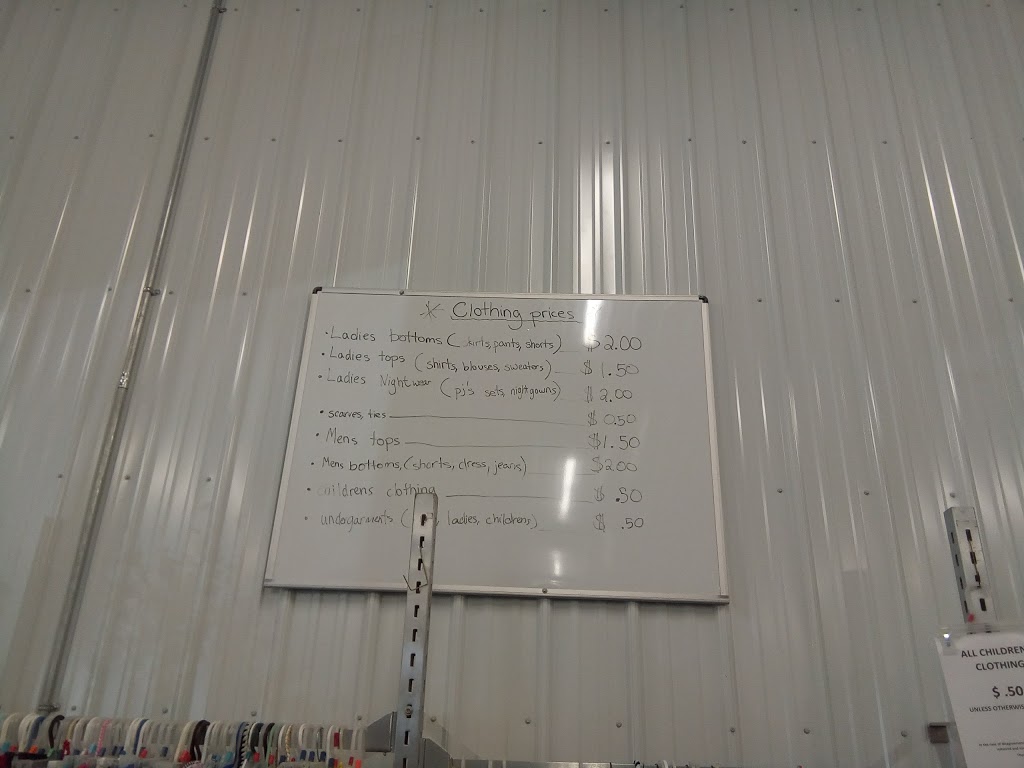 Clothing prices
• Ladies bottoms (skirts, pants, shorts) $2.00
• Ladies tops (shirts, blouses, sweaters) $1.50
• Ladies Nightwear (pj's sets, nightgowns) $2.00
• scarves, ties $0.50
• Mens tops $1.50
• Mens bottoms, (shorts, dress, jeans) $2.00
• childrens clothing $.50
• undagarments ( ladies, childrens) $.50
ALL CHILDREN
CLOTHING
$ .50
UNLESS OTHERWIS